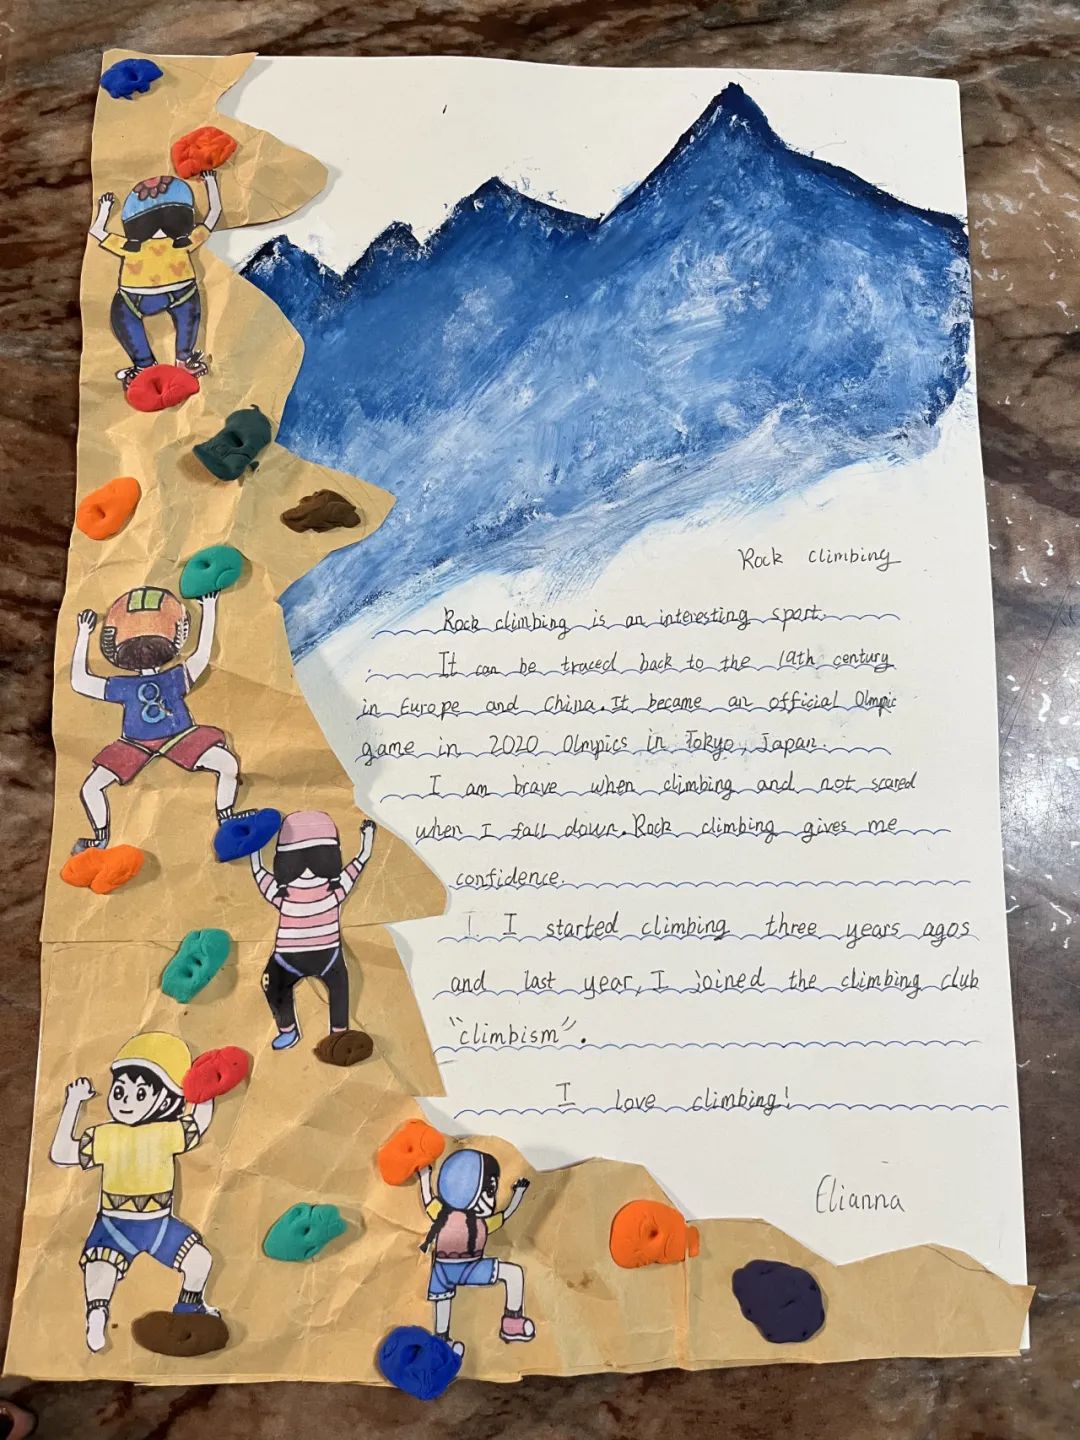 Rock climbing
Rock climbing is an interesting sport.
It can be traced back to the 19th century
in Europe and China. It became an official Olmpic
game in 2020 Olmpics in Tokyo, Japan.
I am brave when climbing and not scared
when I fall down. Rock climbing gives me
confidence.
I started climbing three years agos
and last year, I joined the climbing club
"climbism".
I love climbing!
Elianna
8